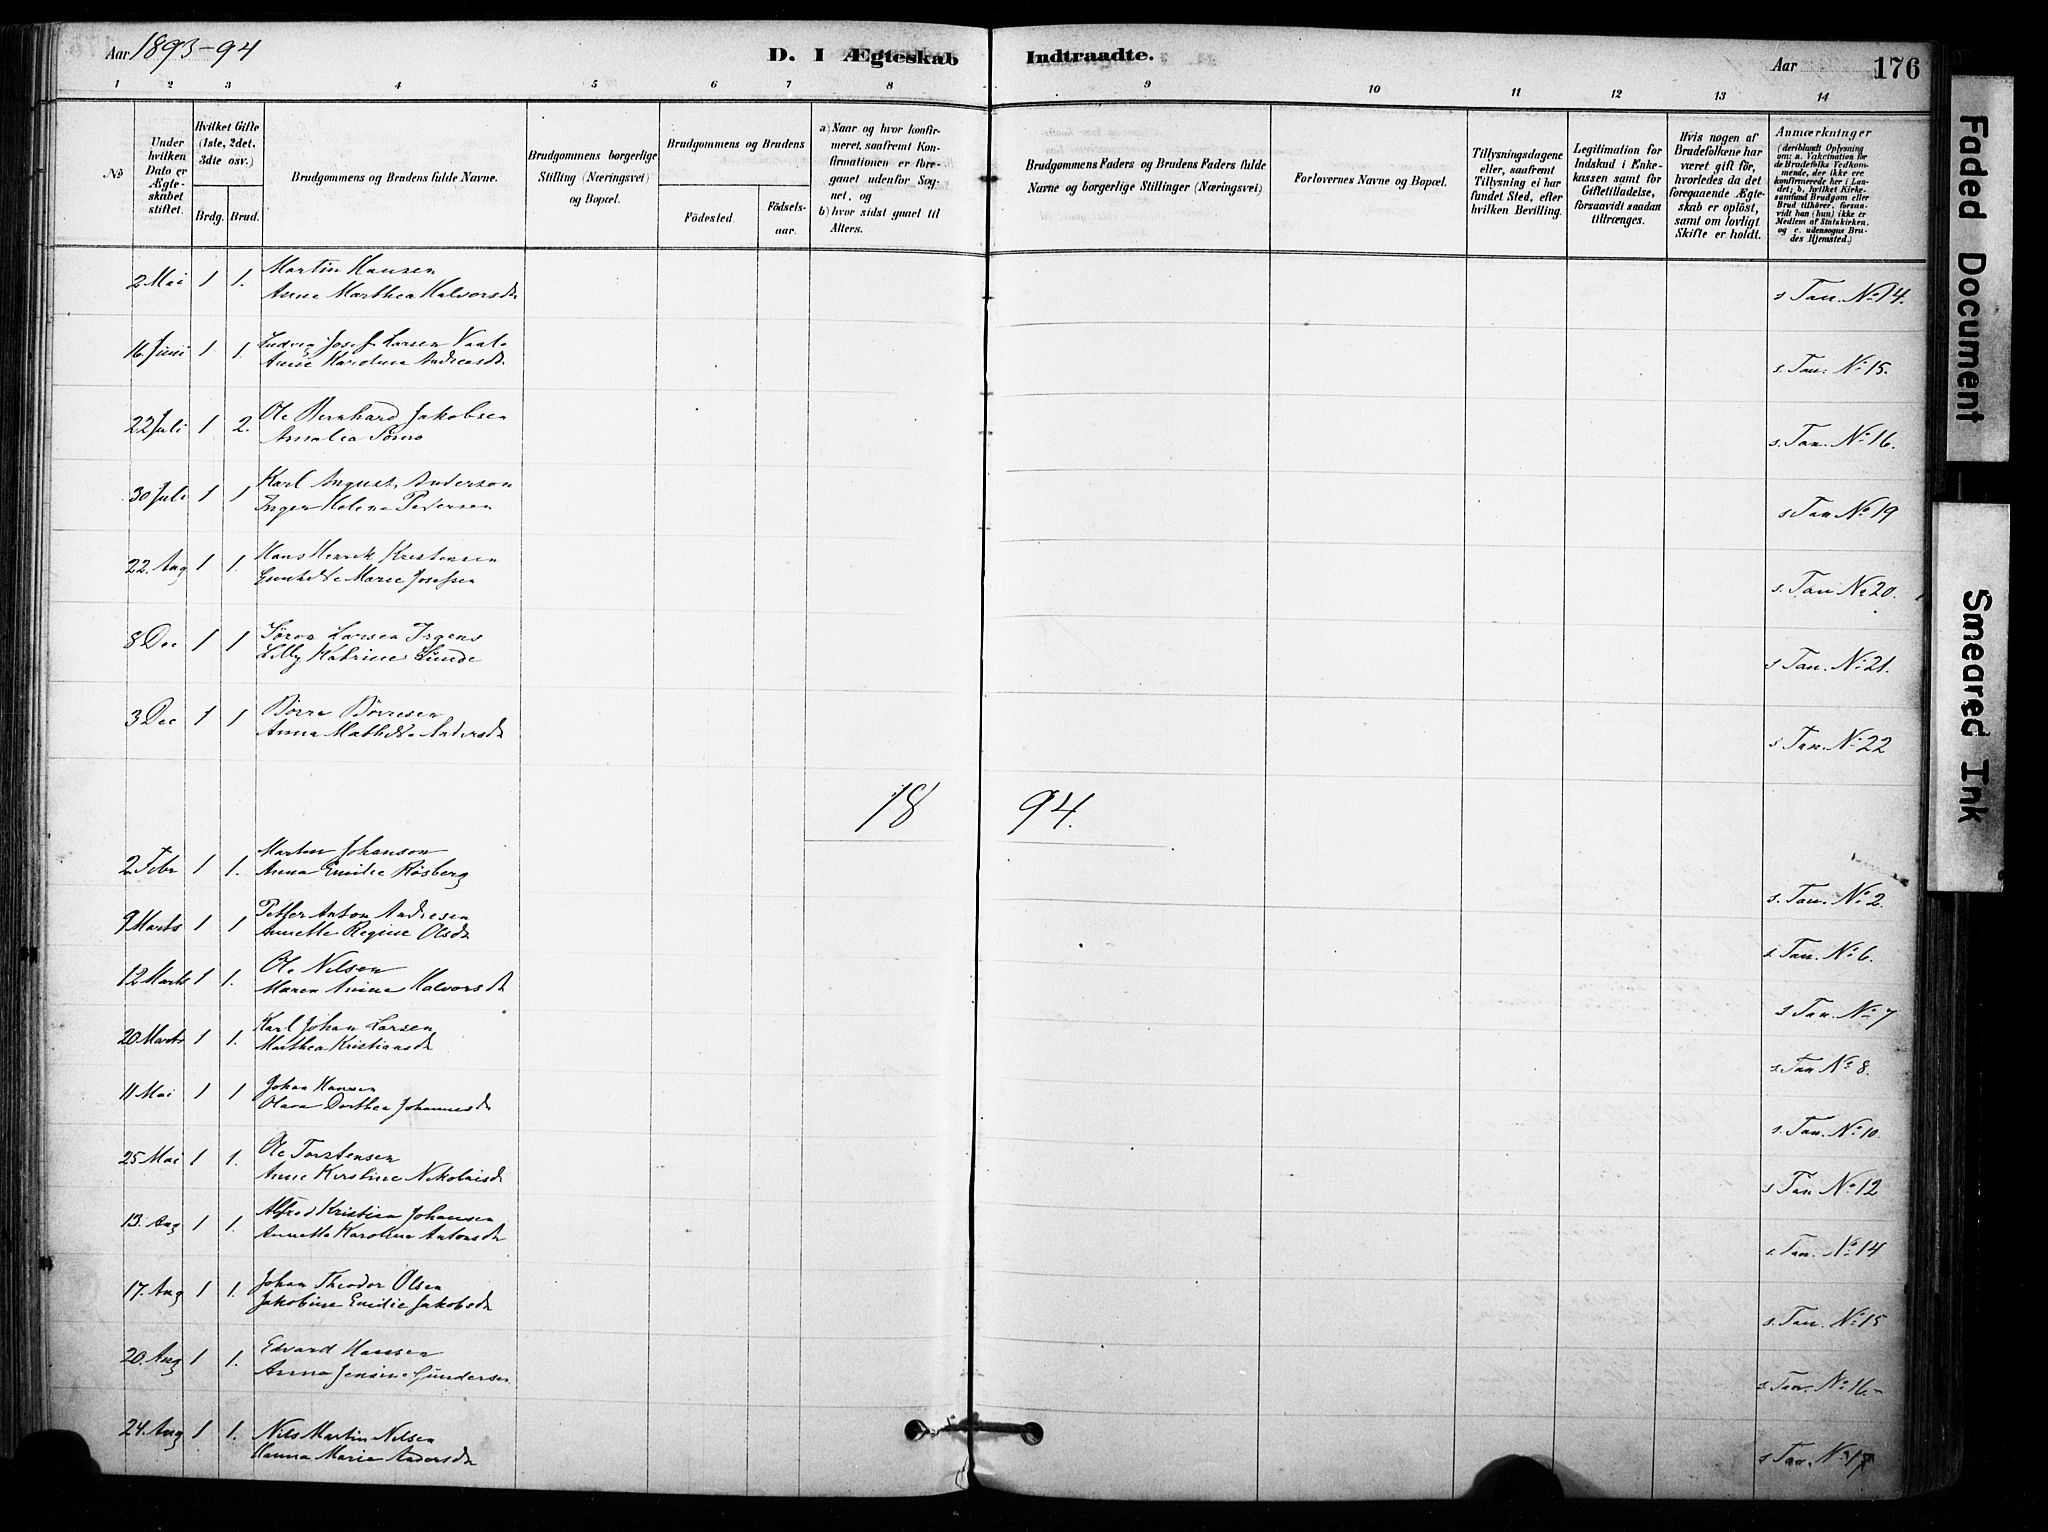 Aar 1893-94
D. I Ægteskab Indtraadte.
Aar 176
1 2 3 4 5 6 7 8 9 10 11 12 13 14
No
Under hvilken Dato er Ægteskabet stiftet.
Hvilket Gifte (1ste, 2det, 3die osv.)
Brdg. Brud.
Brudgommens og Brudens fulde Navne.
Brudgommens borgerlige Stilling (Næringsvei) og Bopæl.
Brudgommens og Brudens
Fødested. Fødselsaar.
a) Naar og hvor konfirmeret, saafremt Konfirmationen er foregaaet udenfor Sognet, og
b) hvor sidst gaaet til Alters.
Brudgommens Faders og Brudens Faders fulde Navne og borgerlige Stillinger (Næringsvei)
Forlovernes Navne og Bopæl.
Tillysningsdagene eller, saafremt Tillysning ei har fundet Sted, efter hvilken Bevilling.
Legitimation for Indskud i Enkekassen samt for Giftetilladelse, forsaavidt saadan tiltrænges.
Hvis nogen af Brudefolkene har været gift før, hvorledes da det foregaaende Ægteskab er opløst, samt om lovligt Skifte er holdt.
Anmærkninger (deriblandt Oplysning om: a. Vakcination for de Brudefolks Vedkommende, der ikke ere konfirmerede her i Landet; b. hvilket Kirkesamfund Brudgom eller Brud tilhører, forsaavidt han (hun) ikke er Medlem af Statskirken, og c. udensogns Brudes Hjemsted.)
2 Mai 1 1. Martin Hansen
Anne Marthea Halvorsdt s Tan. No 14.
16. Juni 1 1. Ludvig Josef Larsen Vaale
Anne Karoline Andreasdt s. Tan. No 15.
22 Juli 1 2. Ole Bernhard Jakobsen
Amalia s. Tan. No 16.
30 Juli 1 1 Karl August Anderson
Inger Helene Pedersen s Tan No 19
22. Aug 1 1. Hans Henrik Kristensen
Marie Josefsen s. Tan No 20.
8 Dec 1 1 Søren Larsen Irgens
Lilly Katrine Sunde s Tan. No 21.
3 Dec 1 1 Børre Børresen
Anna Mathilde Andersdt s Tan. No 22
1894.
2 Febr 1 1. Martin Johanson
Anna Emilie Røsberg s. Tan. No 2.
9 Marts 1 1 Petter Anton Andresen
Annette Regine Olsdt s Tan. No 6.
12 Marts 1 1. Ole Nilsen
Maren Anine Halvorsdt s Tan. No 7
20 Marts 1 1. Karl Johan Larsen
Marthea Kristiansdt s Tan No 8.
11 Mai 1 1 Johan Hansen
Olava Dorthea Johannesdt s. Tan. No 10.
25 Mai 1 1. Ole Torstensen
Anne Kirstine Nikolaisdt s Tan No 12
13. Aug 1 1. Alfred Kristian Johansen
Annette Karoline Antonsdt s. Tan. No 14
17. Aug 1 1. Johan Theodor Olsen
Jakobine Emilie Jakobsdt s. Tan. No 15
20. Aug 1 1. Edvard Hansen
Anna Jensine Gundersen s Tan. No 16-
24. Aug 1 1. Nils Martin Nilsen
Hanna Marie Andersdt s Tan. No 17
Faded Document
Smeared Ink